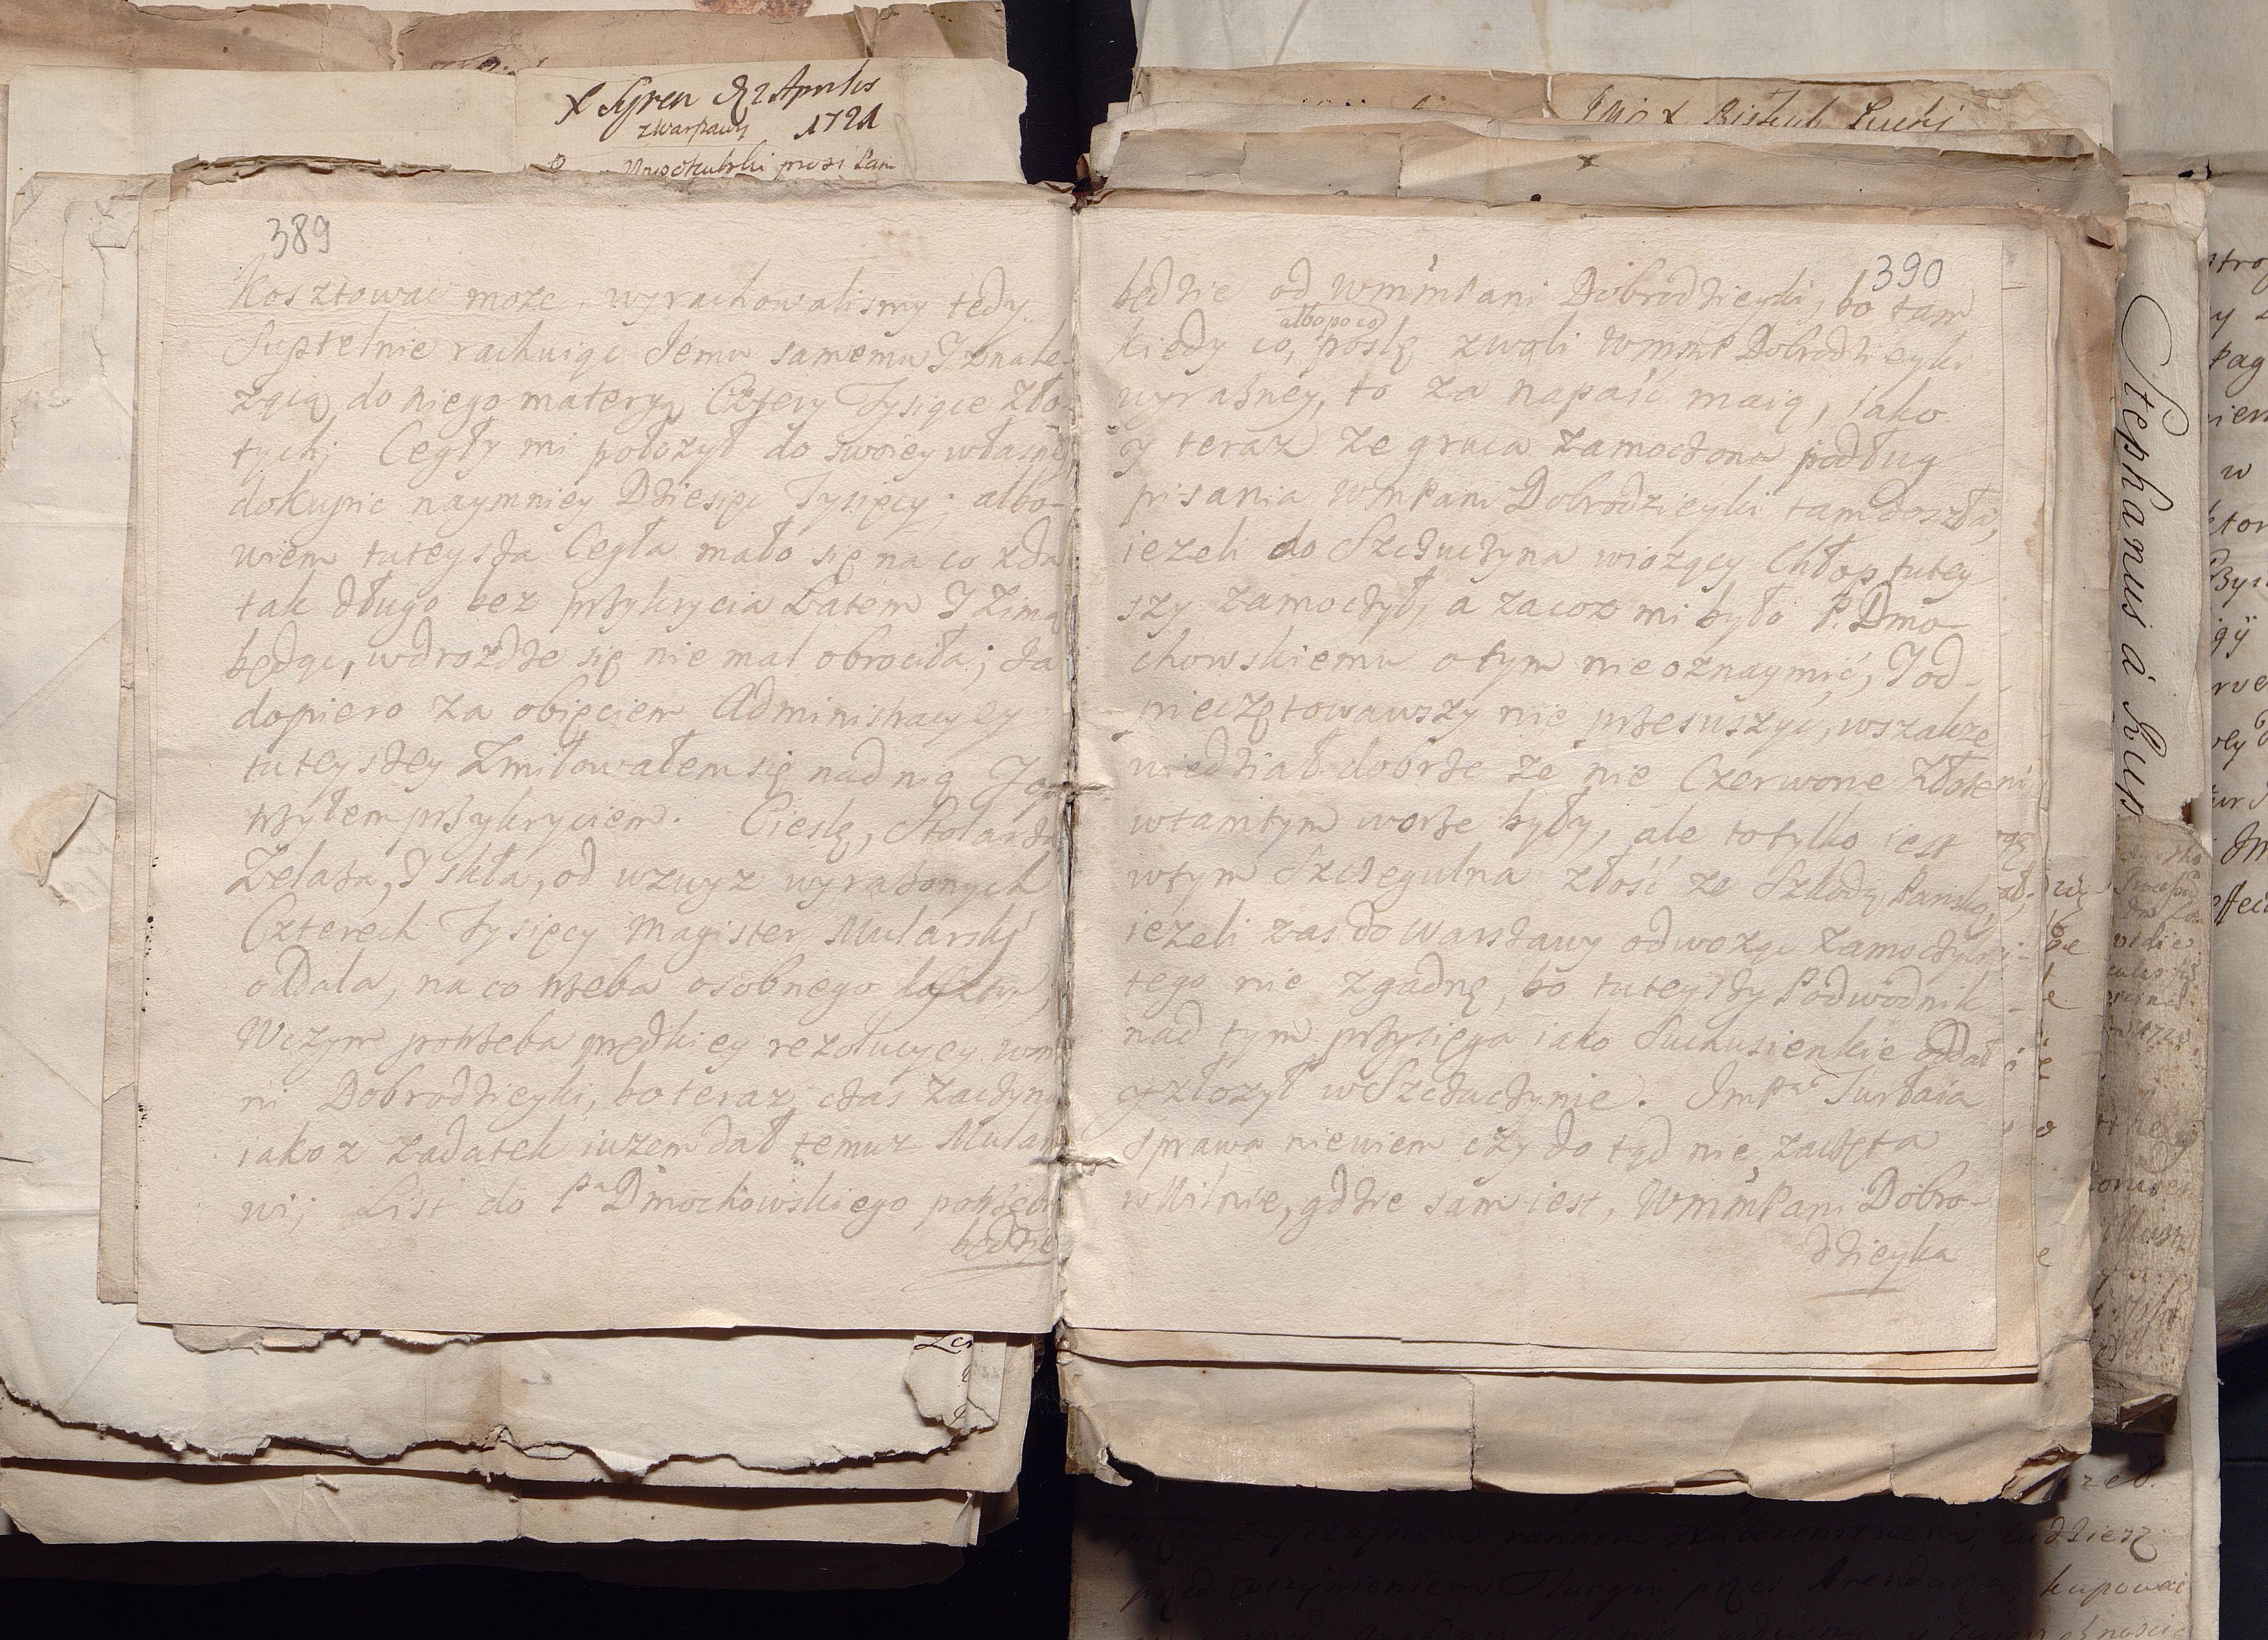 X Syren d 2 Aprilis
z Warszawy 1721
prosi Pan
389
Kosztowac moze, wyrachowalismy tedy
Suptelnie rachuiąc Jemu samemu I znale-
zącą do niego materyą Cztery Tysiące Zło-
tych; Cegły mi położył do swoiey własney
dokupic naymniey Dziesięc Tysięcy; albo-
wiem tuteysza Cegła mało się na co zda
tak długo bez przykrycia Latem I Zimą
będąc, wdrozdze się nie mal obrociła; Ja
dopiero za obięciem Administracyey
tuteyszey Zmiłowałem się nad nią I
przykryciem. Cieslę, Stolarza
Zelaza, I skła, od wzwyz wyrazonych
Czterech Tysięcy Magister Mularsky
oddala, na co trzeba osobnego kosztu,
Wczym potrzeba prędkiey rezolucyey wm
ni Dobrodzieyki, bo teraz czas zaczyna
iakoz zadatek iuzem dał temuz Mular
wi; List do Pa Dmochowskiego potrzebn
będzie
390
będzie od WmmPani Dobrodzieyki, bo tam
albo po co
kiedy co, poslę zwoli WmmP Dobrodzieyki
wyrazney, to za napaść maią, iako
y teraz ze gruca zamoczona podług
pisania WmPani Dobrodzieyki tam doszła,
iezeli do Szczuczyna wiozący Chłop tutey
szy zamoczył, a zacoz mi było P. Dmo
chowskiemu o tym nie oznaymić, I od-
pieczętowawszy nie przesuszyć, wszakze
wiedział dobrze ze nie Czerwone Złote
wtamtym worze były, ale to tylko iest
wtym Szczegulna złość ze Szkodą Panską,
iezeli zas do Warszawy odwoząc zamoczyli
tego nie zgadnę, bo tuteyszy Podwodnik
nad tym przysięga iako Suchusienkie oddał
y złozył w Szczuczynie. ImPa Turłaia
sprawa niewiem czy do tąd nie zaczęta
wWilnie, gdzie sam iest, WmmPani Dobro-
dzieyka
Stephanus à Rup